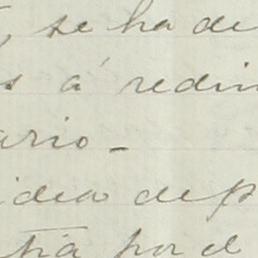 , se ha de
s á redim
ario_
idea de p
tia por el